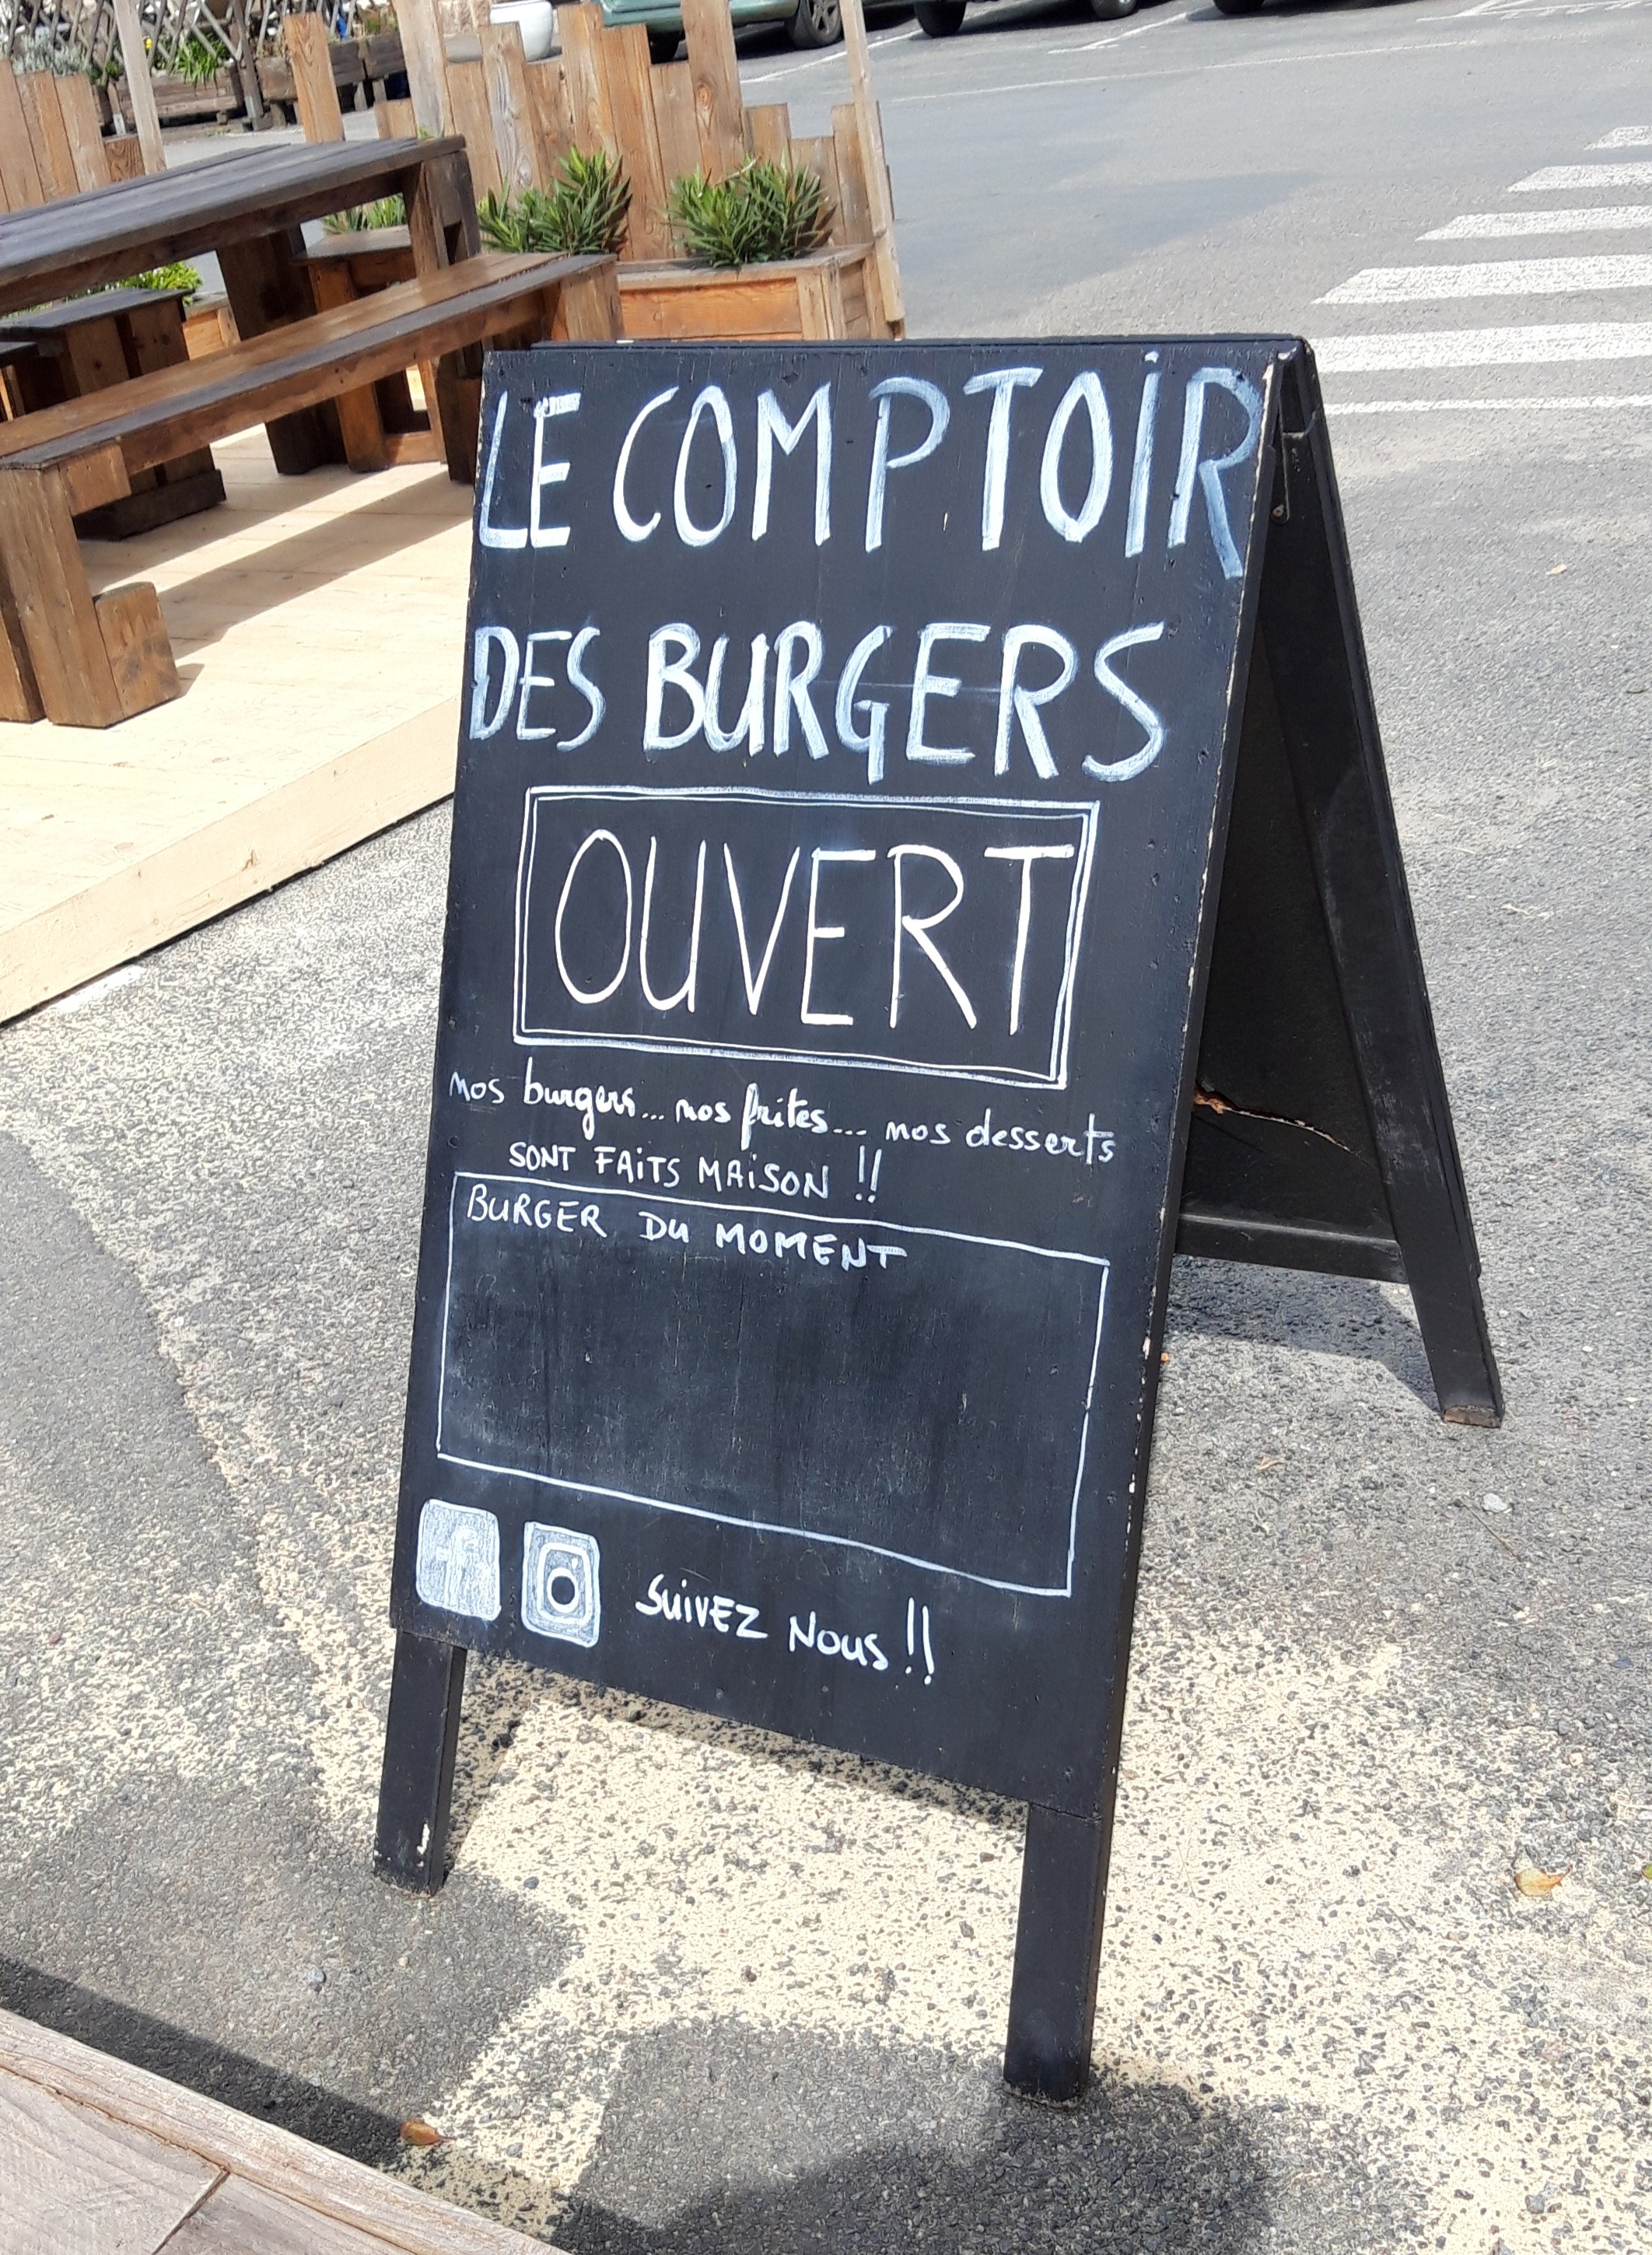 LE COMPTOIR
DES BURGERS
OUVERT
nos burgers... nos frites... nos desserts
SONT FAITS MAISON !!
BURGER DU MOMENT
f SUIVEZ NOUS !!